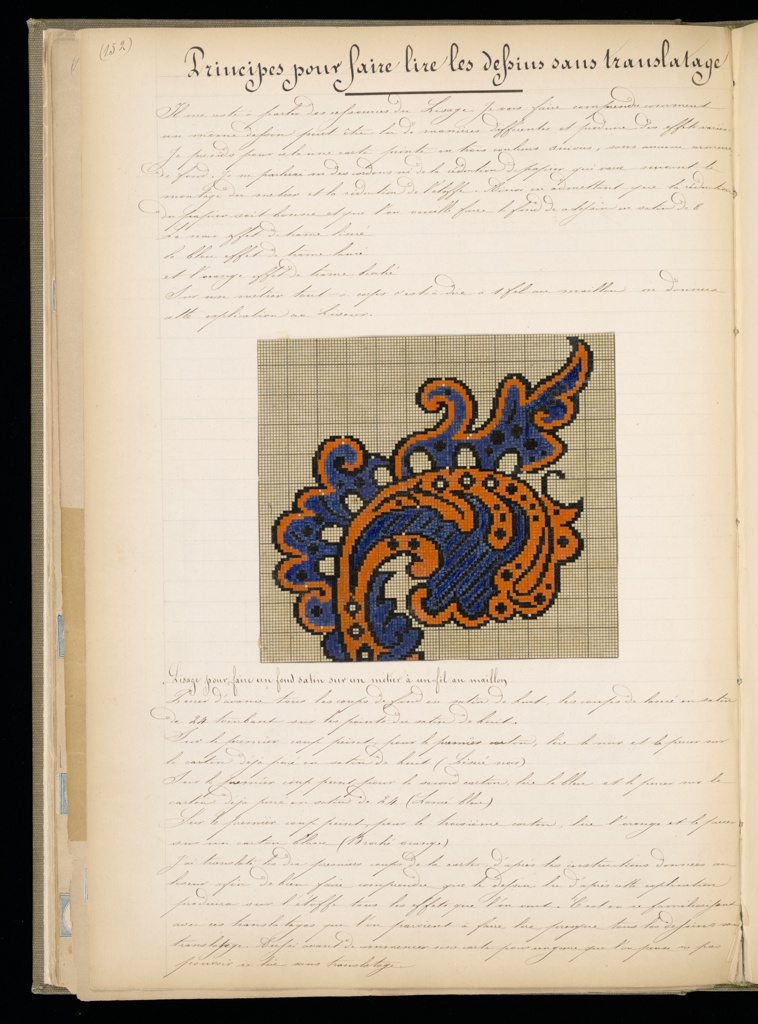 (152)
Principes pour faire lire les dessins sans translatage
Il me reste à parler des ressources du Lisage. Je vais faire comprendre comment
un même dessin peut être lu de manières différentes et produire des effets variés
Je prends pour cela une carte peinte en trois couleurs suivies, sans aucune
de fond. Je ne parlerai ni des ni de la réduction du papier qui varie suivant le
montage du métier et la réduction de l'étoffe. Ainsi en admettant que la réduction
du papier soit bonne et que l'on veuille faire le fond du dessin en satin de 8
le noir effet de trame liseré
le bleu effet de trame lancé
et l'orange effet de trame broché
Sur un métier tout à corps c'est à dire à 1 fil au maillon on donnera
cette explication au Liseur.
Lisage pour faire un fond satin sur un métier à un fil au maillon
Percer d'avance tous les coups de fond en satin de huit, les coups de lancé en satin
de 24 tombant sur les points du satin de huit.
Sur le premier coup peint, pour le premier carton, lire le noir et le percer sur
le carton déjà percé en satin de huit (Liseré noir)
Sur le premier coup peint pour le second carton, lire le bleu et le percer sur le
carton déjà percé en satin de 24 (Lancé bleu)
Sur le premier coup peint, pour le troisième carton, lire l'orange et le percer
sur un carton blanc (Broché orange)
J'ai translaté les dix premiers coups de la carte d'après les instructions données au
liseur afin de bien faire comprendre que le dessin lu d'après cette explication
produira sur l'étoffe tous les effets que l'on veut. C'est en se familiarisant
avec ces translatages que l'on parvient à faire lire presque tous les dessins sans
translatage. Aussi avant de commencer une carte
pouvoir la lire sans translatage.